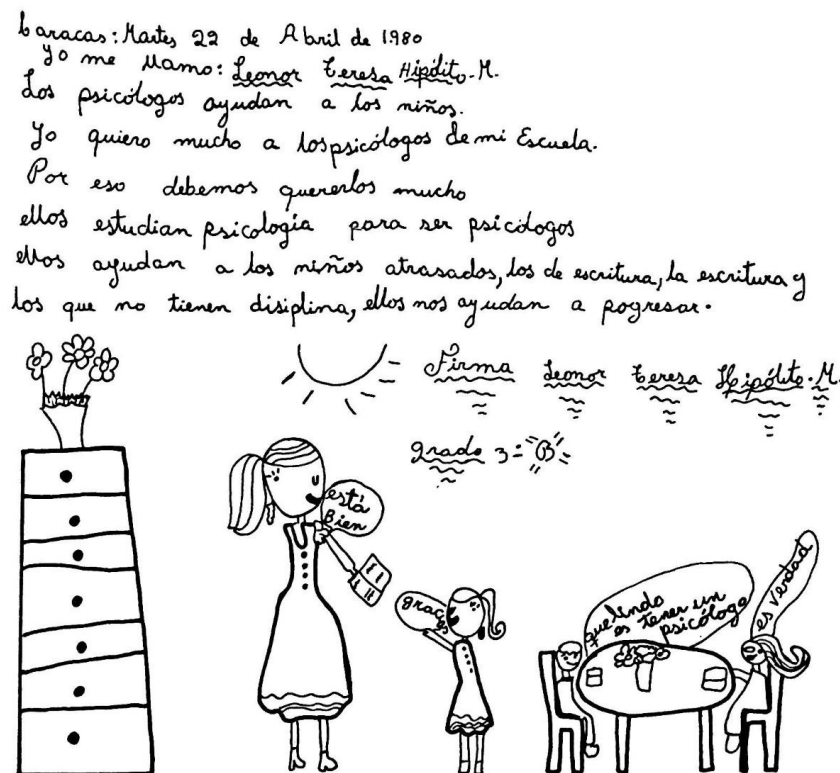 Caracas: Martes 22 de Abril de 1980
Yo me llamo: Leonor Teresa Hipólito. M.
Los psicólogos ayudan a los niños.
Yo quiero mucho a los psicólogos de mi Escuela.
Por eso debemos quererlos mucho
ellos estudian psicología para ser psicólogos
ellos ayudan a los niños atrasados, los de escritura, la escritura y
los que no tienen disiplina, ellos nos ayudan a pogresar.
Firma Leonor Teresa Hipólito. M.
grado 3= "B"
está
Bien
graci
es
que lindo
es tener un
psicólogo
es verdad